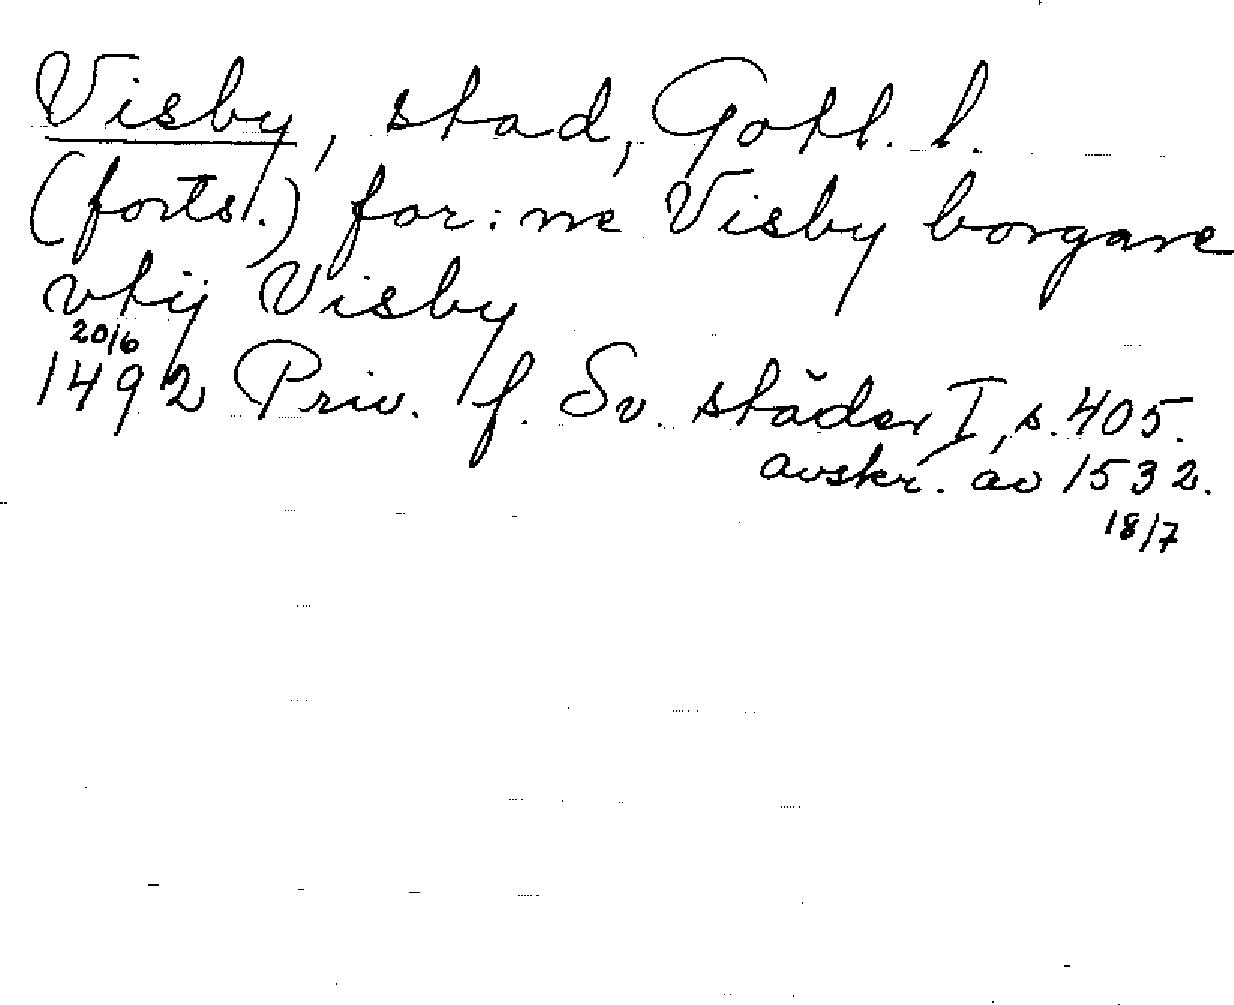 Visby, stad, Gotl. l.
(forts.) for: ne Visby borgare
vtij Visby
20/6
1492 Priv. f. Sv. städer I, s. 405.
avskr. av 1532.
18/7